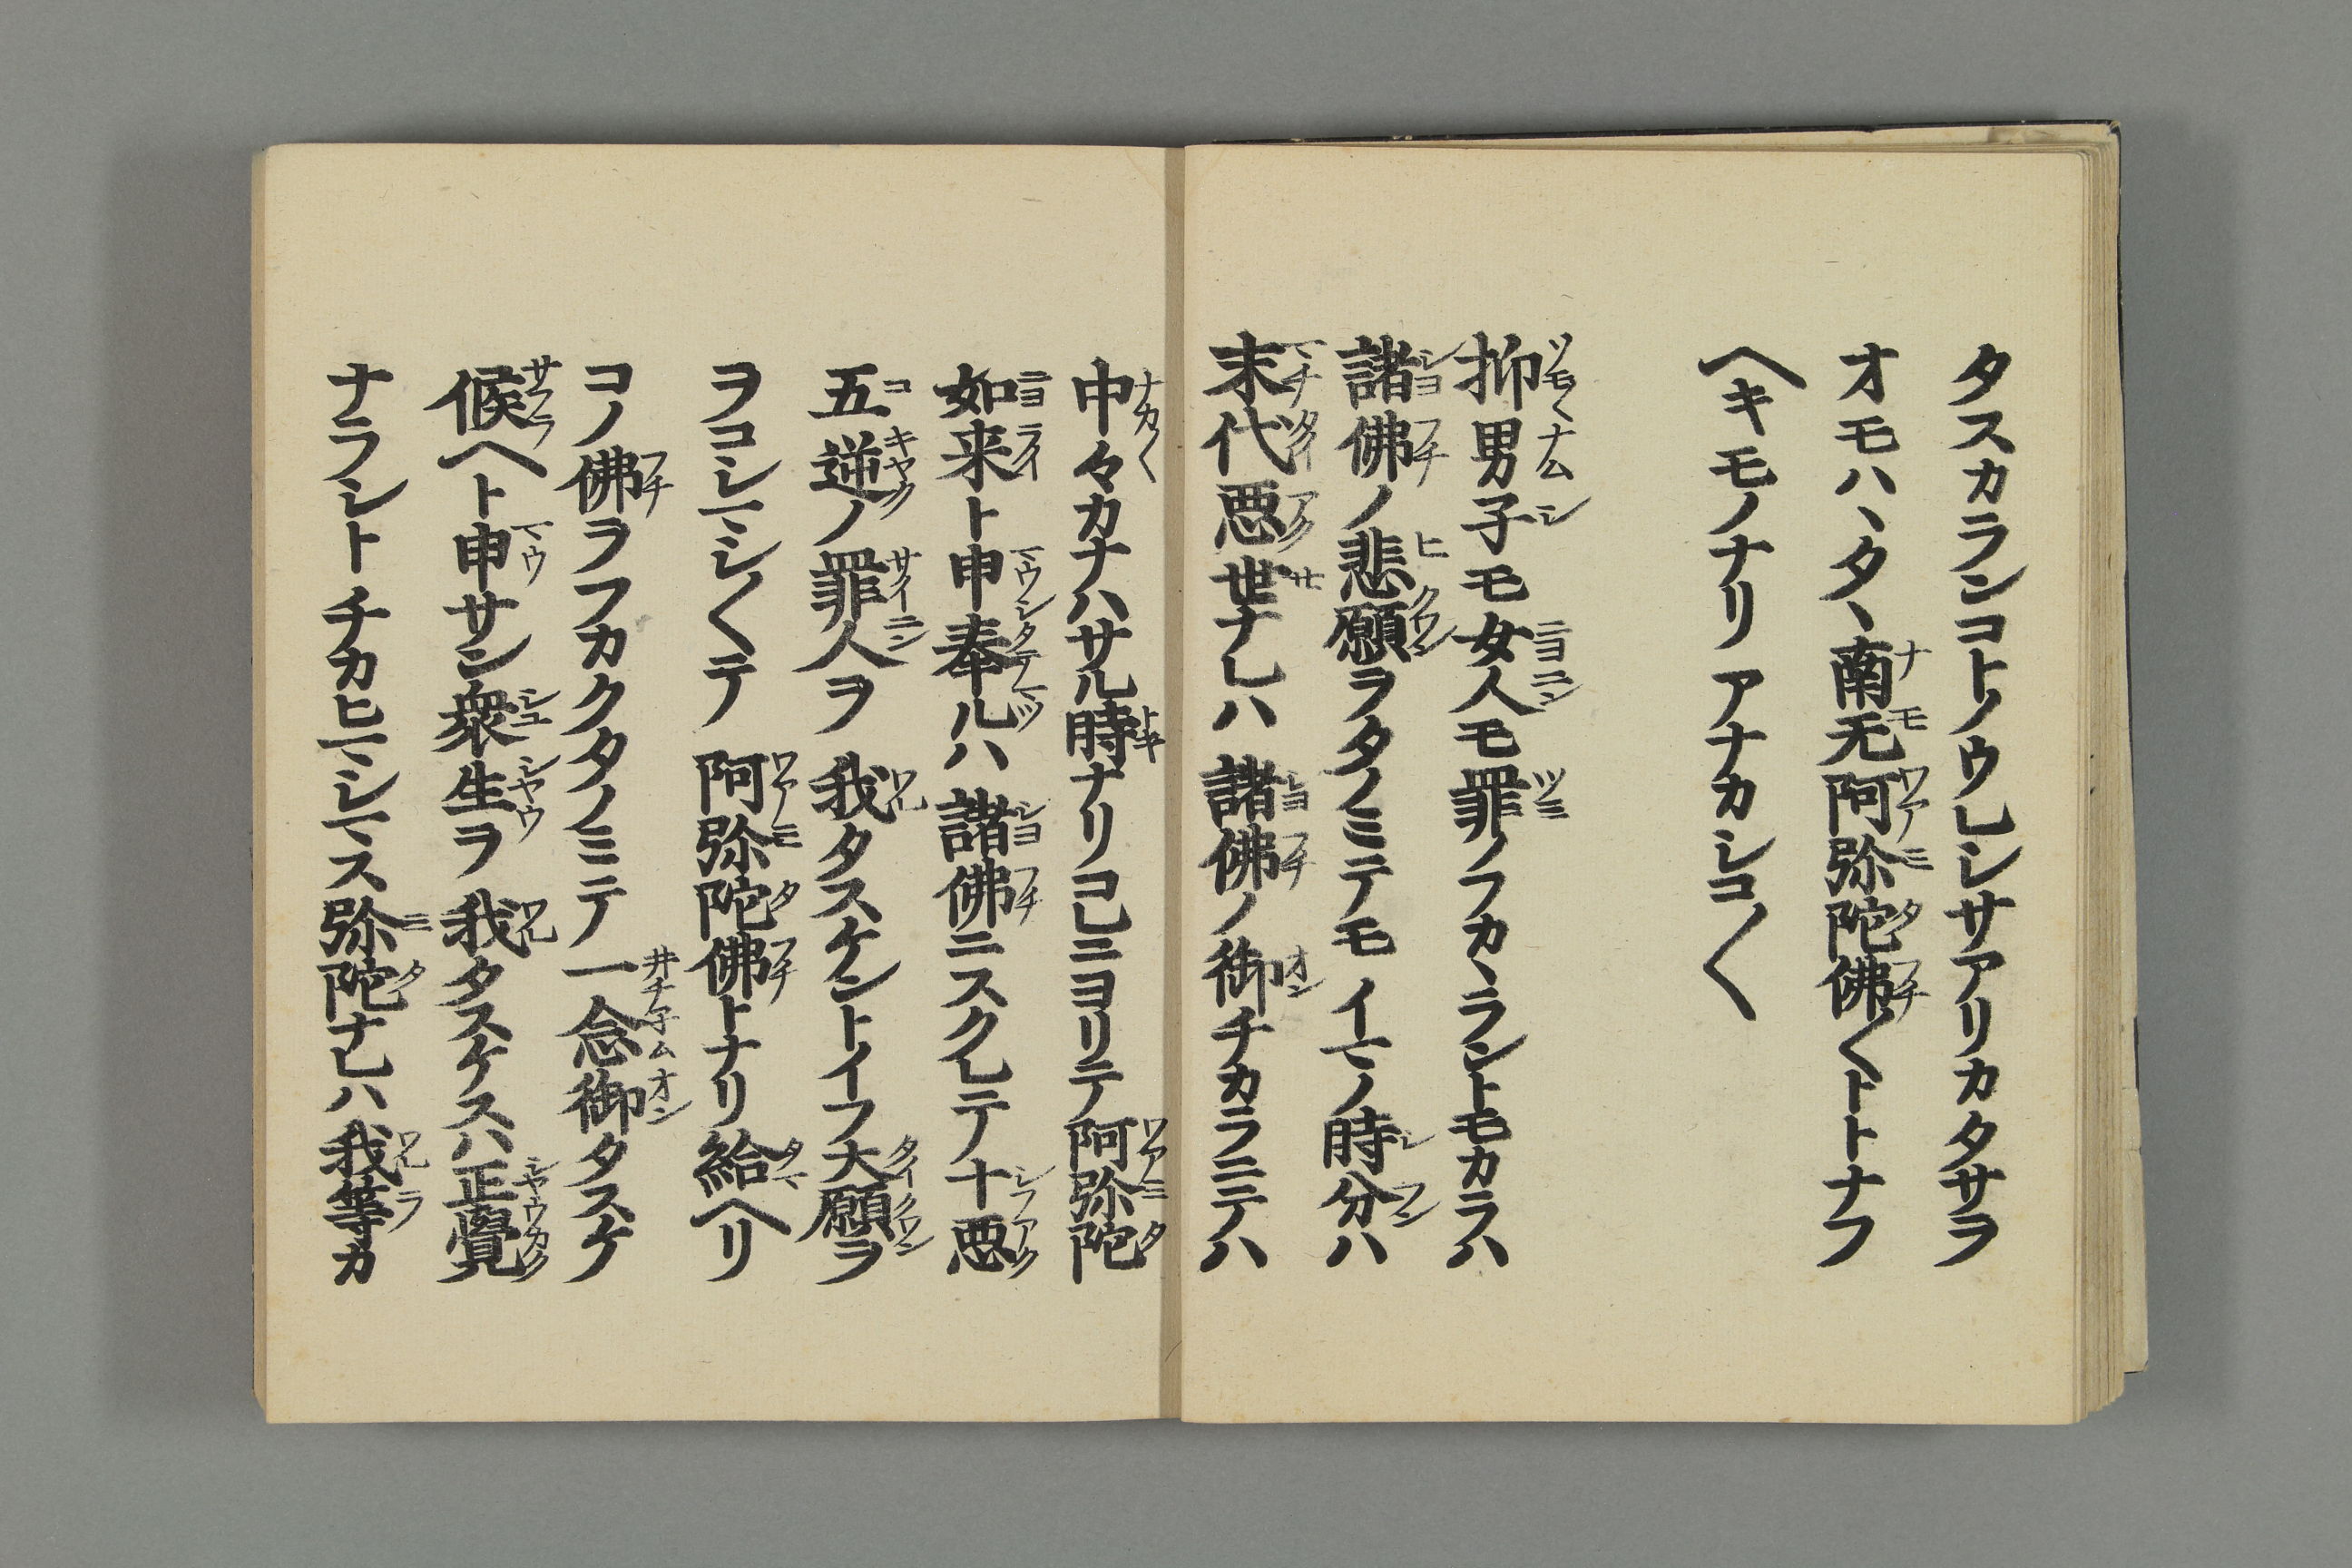 タスカランコトノウレシサアリカタサヲ
オモハヽタヽ南无阿弥陀佛〱トトナフ
ヘキモノナリアナカシコ〱
抑男子モ女人モ罪ノフカヽラントモカラハ
諸佛ノ悲願ヲタノミテモイマノ時分ハ
末代悪世ナレハ諸佛ノ御チカラニテハ
中々カナハサル時ナリコレニヨリテ阿弥陀
如来ト申奉ルハ諸佛ニスクレテ十悪
五逆ノ罪人ヲ我タスケントイフ大願ヲ
ヲコシマシ〱テ阿弥陀佛トナリ給ヘリ
コノ佛ヲフカクタノミテ一念御タスケ
候ヘト申サン衆生ヲ我タスケスハ正覺
ナラントチカヒマシマス弥陀ナレハ我等カ